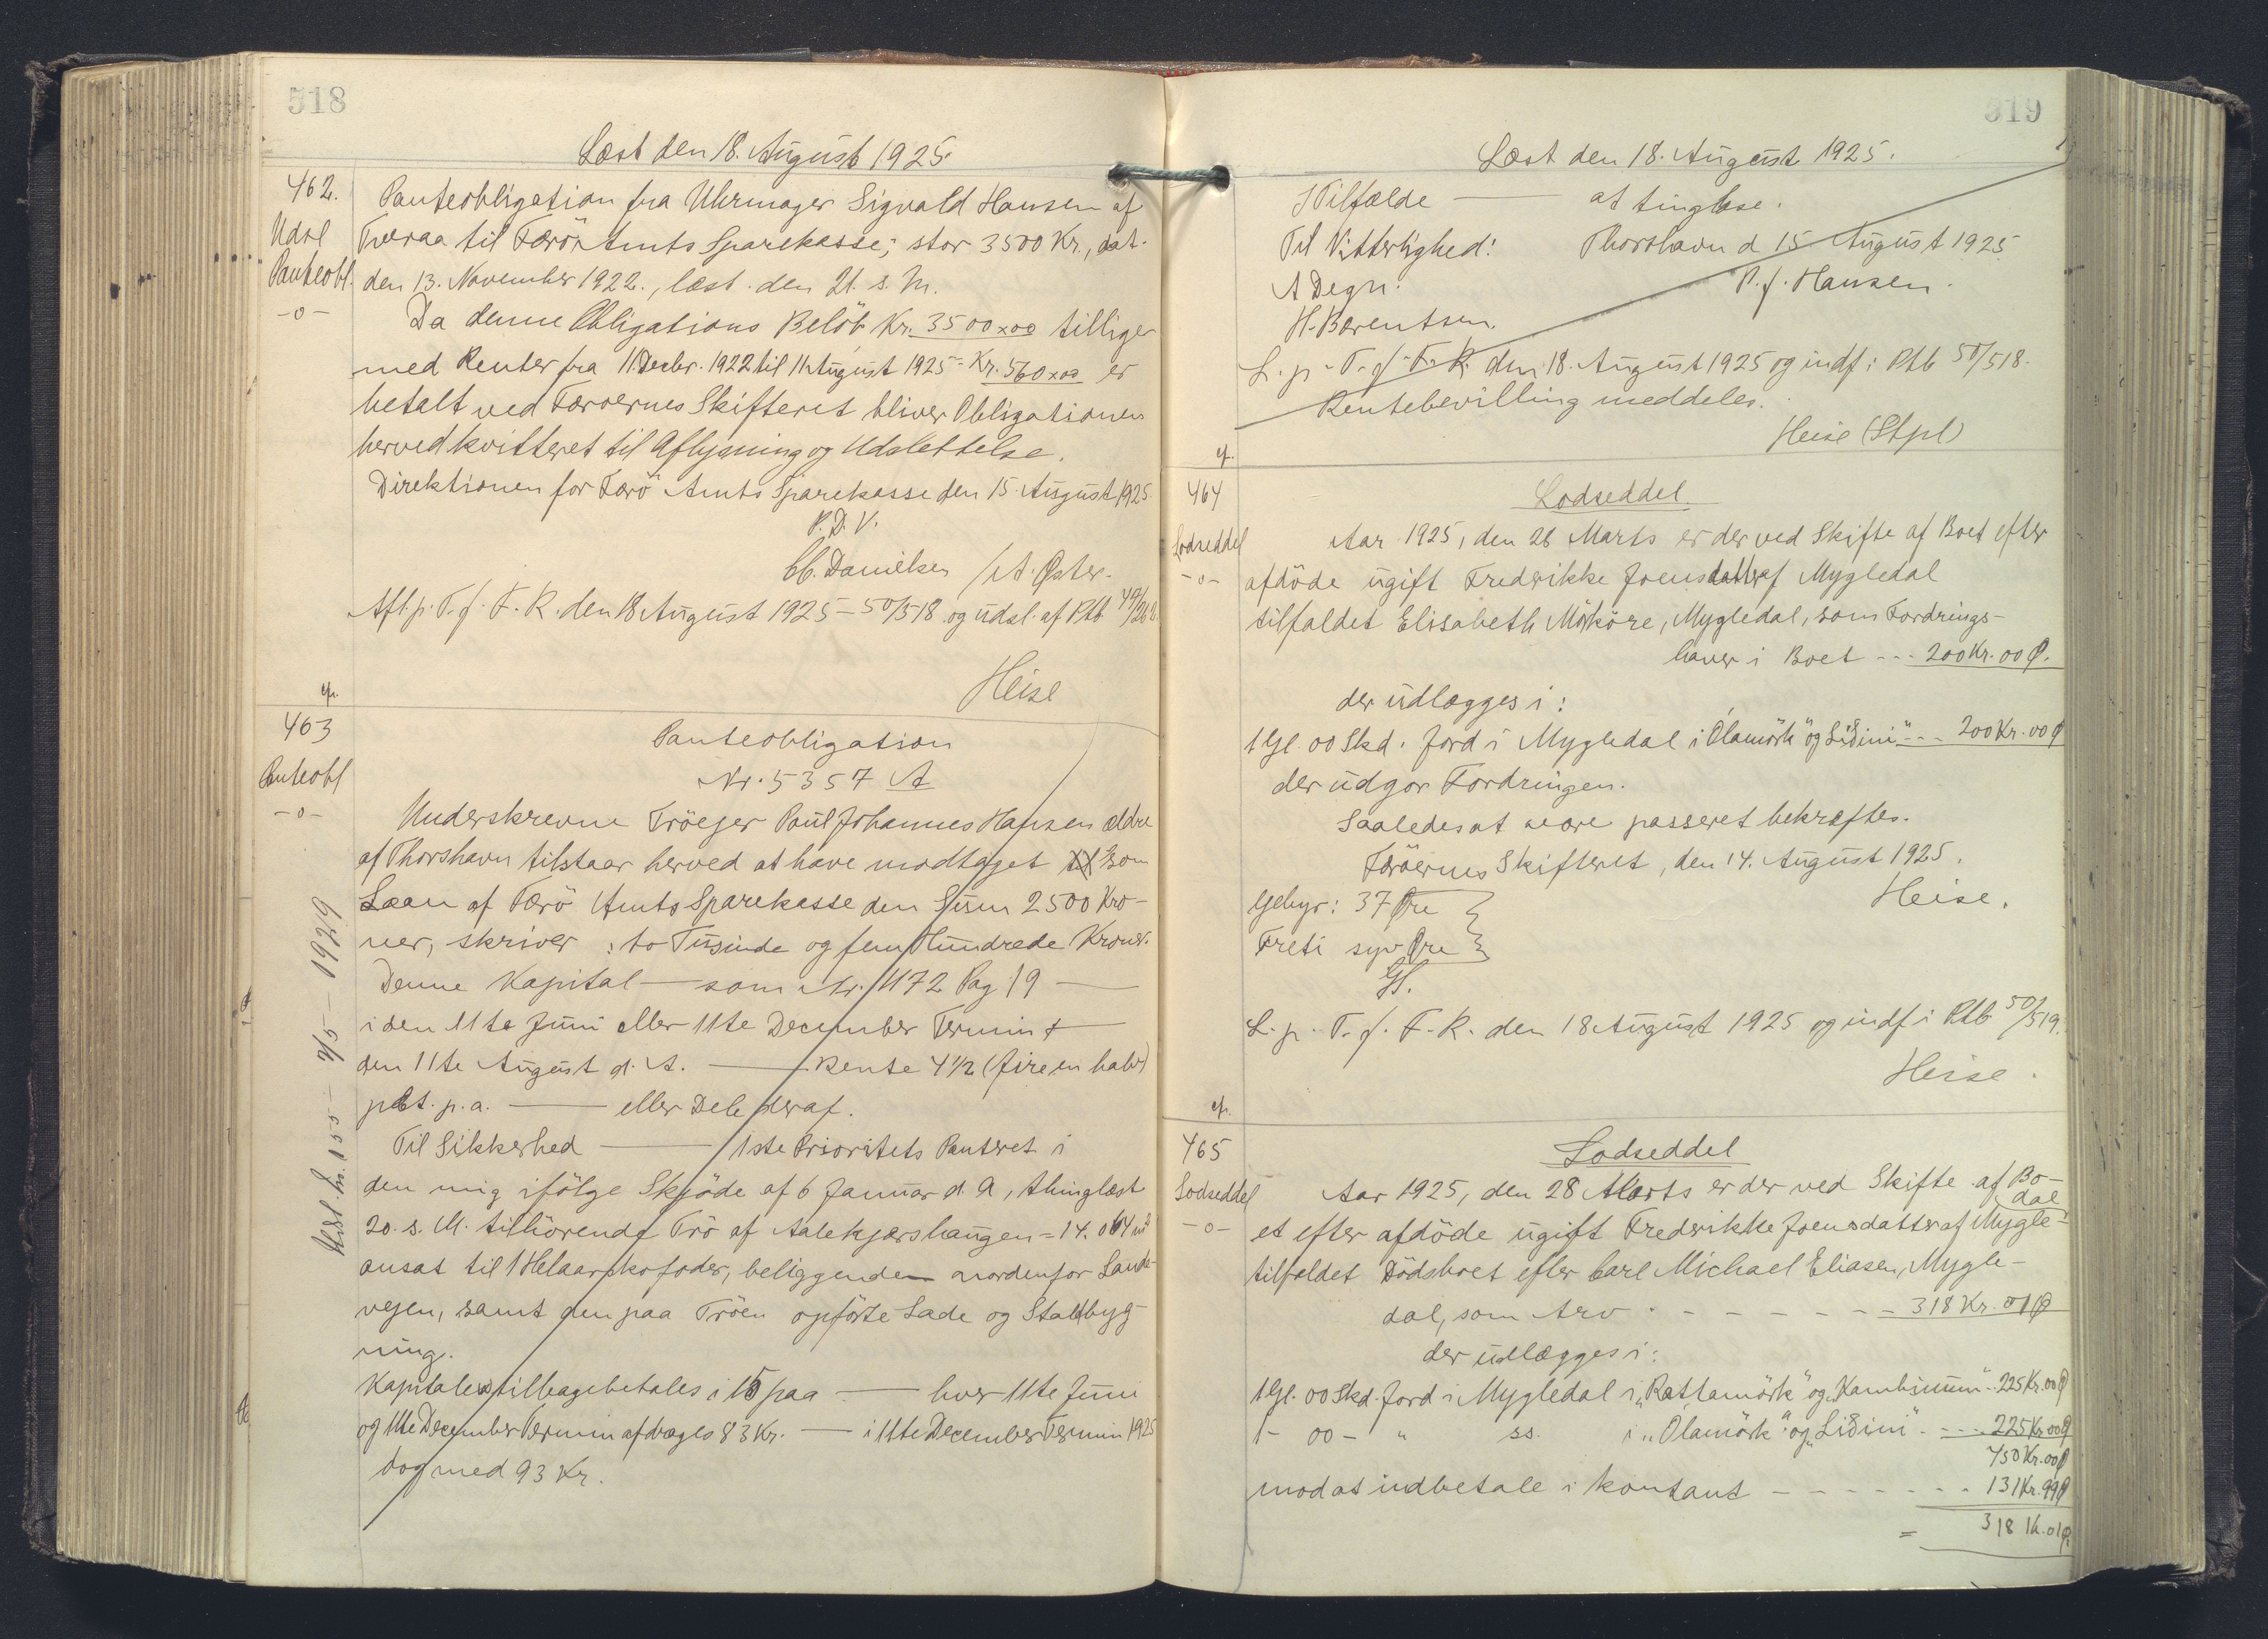 518
Læst den 18. August 1925.
462.
Udsl
Panteobl.
-o-
Panteobligation fra Uhrmager Sigvald Hansen af
Tveraa til Færö Amts Sparekasse; stor 3500 Kr., dat.
den 13. November 1922., læst den 21. s. M.
Da denne Obligations Belöb Kr. 3500 x 00 tilliger
med Renter fra 11. Decbr. 1922 til 11 August 1925 = Kr. 560 x 00 er
betalt ved Færöernes Skifteret bliver Obligationen
herved kvitteret til Aflysning og Udslettelse.
Direktionen for Færö Amts Sparekasse den 15. August 1925
P.D.V.
C.C. Danielsen / A. Øster.
Afl. p. T. f. F. R. den 18 August 1925 - 50/518 og udsl. af Ptb 49/262.
Heise
cfr.
463
Panteobl
-o-
Panteobligation
Nr. 5357 A
Underskrevne Tröejer Paul Johannes Hansen ældre
af Thorshavn tilstaar herved at have modtaget til som
Laan af Færö Amts Sparekasse den Sum 2500 Kro-
ner, skriver: to Tusinde og fem Hundrede Kroner.
Denne Kapital — som Nr. 1172 Pag 19 —
i den 11te Juni eller 11te December Termin +
den 11te August d. A. — Rente 4 1/2 (fire en halv)
pCt. p.a. — eller Dele deraf.
Til Sikkerhed — 1ste Prioritets Panteret i
den mig ifölge Skjöde af 6 Januar d. A, thinglæst
20. s. M. tilhörende Trö af Aalekjærshaugen = 14.064 m2
ansat til 1 Helaarskofoder, beliggende nordenfor Lande-
vejen, samt den paa Tröen opförte Lade og Staldbyg-
ning.
Kapitalen tilbagebetales i 15 paa — hver 11te Juni
og 11te December Termin afdrages 83 Kr. — i 11te December Termin 1925
dog med 93 Kr.
Udsl. Nr. 155 - 7/5 - 1929
319
Læst den 18. August 1925.
I Tilfælde — at tinglæse.
Til Vitterlighed: Thorshavn d 15 August 1925
A Degn. P. J. Hansen.
H. Bærentsen.
L. p. T. f. F. R. den 18. August 1925 og indf i Ptb 50/518.
Rentebevilling meddeles.
Heise (Stpl)
cfr.
464
Lodseddel
-o-
Lodseddel
Aar 1925, den 28 Marts er der ved Skifte af Boet efter
afdöde ugift Fredrikke Joensdatter af Mygledal
tilfaldet Elisabeth Mörköre, Mygledal, som Fordrings-
haver i Boet --- 200 Kr. 00 Ø.
der udlægges i:
1 Gl. 00 Skd. Jord i Mygledal i "Ólamörk" og "Liðini" --- 200 Kr. 00 Ø
der udgör Fordringen.
Saaledes at være passeret bekræftes.
Færöernes Skifteret, den 14. August 1925.
Heise.
Gebyr: 37 Øre
Treti syv Øre
GH.
L. p. T. f. F. R. den 18 August 1925 og indf i Ptb 50/519.
Heise.
cfr.
465
Lodseddel
-o-
Lodseddel
Aar 1925, den 28 Marts er der ved Skifte af Bo-
et efter afdöde ugift Fredrikke Joensdatter af Mygle-
dal
tilfaldet Dödsboet efter Carl Michael Eliasen, Mygle-
dal, som Arv - - - - - - - 318 Kr. 01 Ø
der udlægges i:
1 Gl. 00 Skd. Jord i Mygledal i "Rættamörk" og "Kambinum" - 225 Kr. 00 Ø
1 - 00 - " ss. i "Olamörk" og "Liðini" - --- 225 Kr 00 Ø
450 Kr. 00 Ø
mod at indbetale i kontant - - - - - - - 131 Kr. 99 Ø
= 318 Kr. 01 Ø.